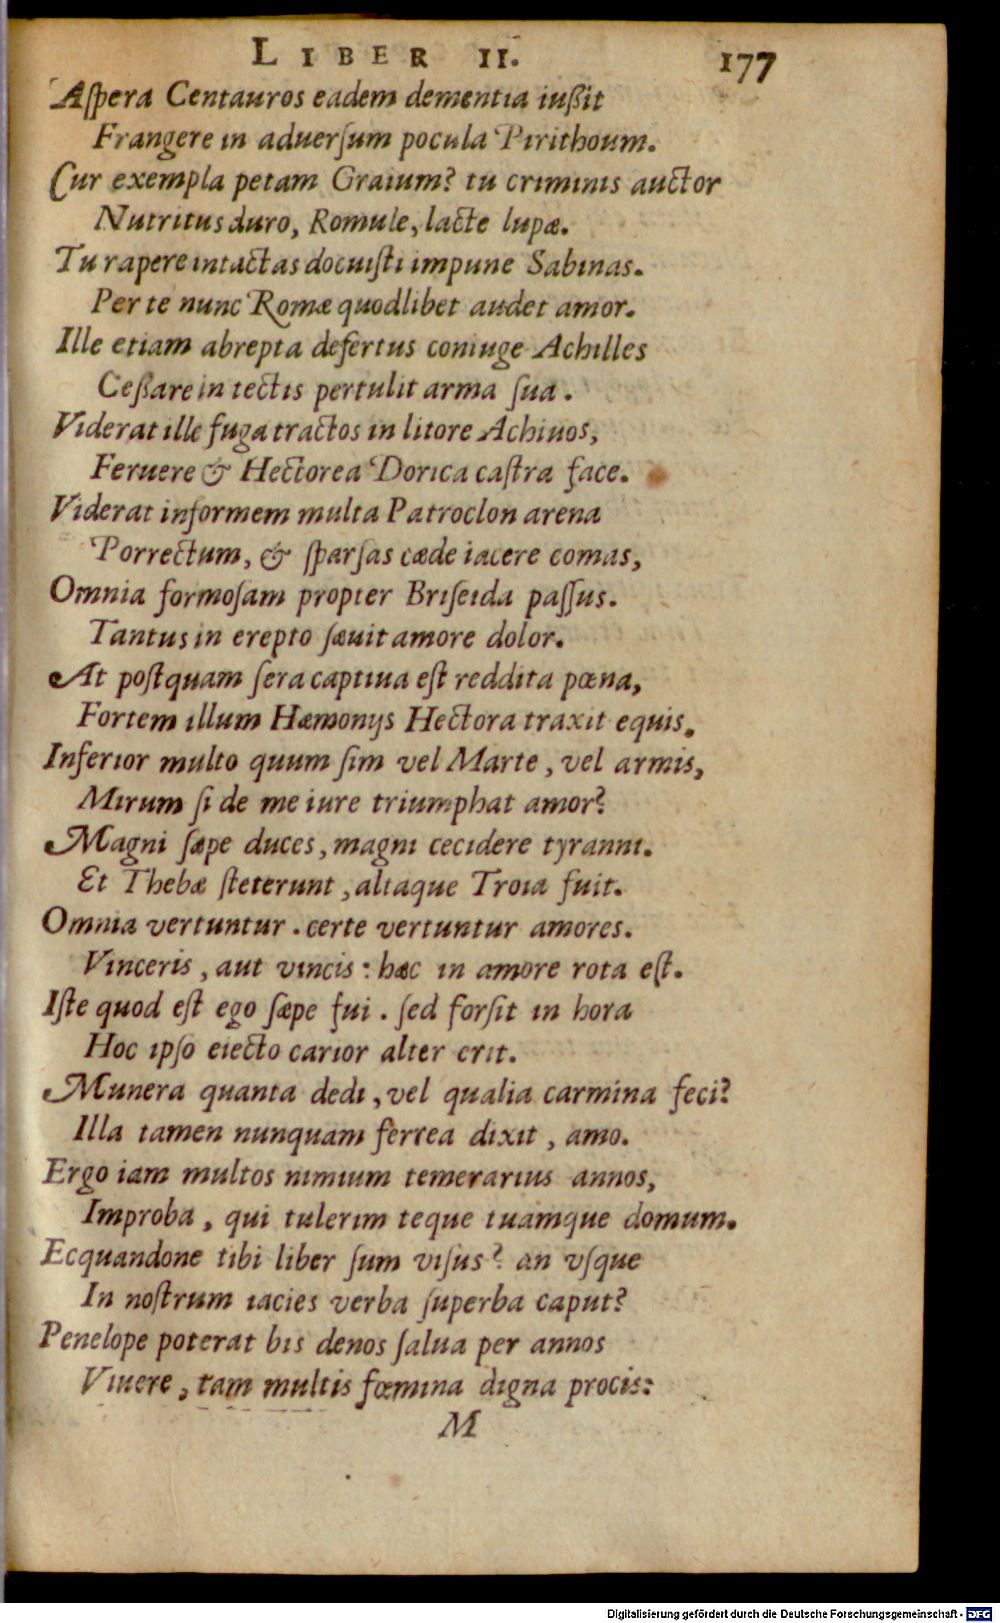 LIBER II. 177
Aſpera Centauros eadem dementia iußit
Frangere in aduerſum pocula Pirithoum.
Cur exempla petam Graium? tu criminis auctor
Nutritus duro, Romule, lacte lupæ.
Tu rapere intactas docuiſti impune Sabinas.
Per te nunc Romæ quodlibet audet amor.
Ille etiam abrepta deſertus coniuge Achilles
Ceßare in tectis pertulit arma ſua.
Viderat ille fuga tractos in litore Achiuos,
Feruere & Hectorea Dorica caſtra face.
Viderat informem multa Patroclon arena
Porrectum, & ſparſas cæde iacere comas,
Omnia formoſam propter Briſeida paſſus.
Tantus in erepto ſæuit amore dolor.
At poſtquam ſera captiua eſt reddita pœna,
Fortem illum Hæmonijs Hectora traxit equis.
Inferior multo quum ſim vel Marte, vel armis,
Mirum ſi de me iure triumphat amor?
Magni ſæpe duces, magni cecidere tyranni.
Et Thebæ ſteterunt, altaque Troia fuit.
Omnia vertuntur. certe vertuntur amores.
Vinceris, aut vincis: hæc in amore rota eſt.
Iſte quod eſt ego ſæpe fui. ſed forſit in hora
Hoc ipſo eiecto carior alter erit.
Munera quanta dedi, vel qualia carmina feci?
Illa tamen nunquam ferrea dixit, amo.
Ergo iam multos nimium temerarius annos,
Improba, qui tulerim teque tuamque domum.
Ecquandone tibi liber ſum viſus? an vſque
In noſtrum iacies verba ſuperba caput?
Penelope poterat bis denos ſalua per annos
Viuere, tam multis fœmina digna procis:
M
Digitalisierung gefördert durch die Deutsche Forschungsgemeinschaft - DFG